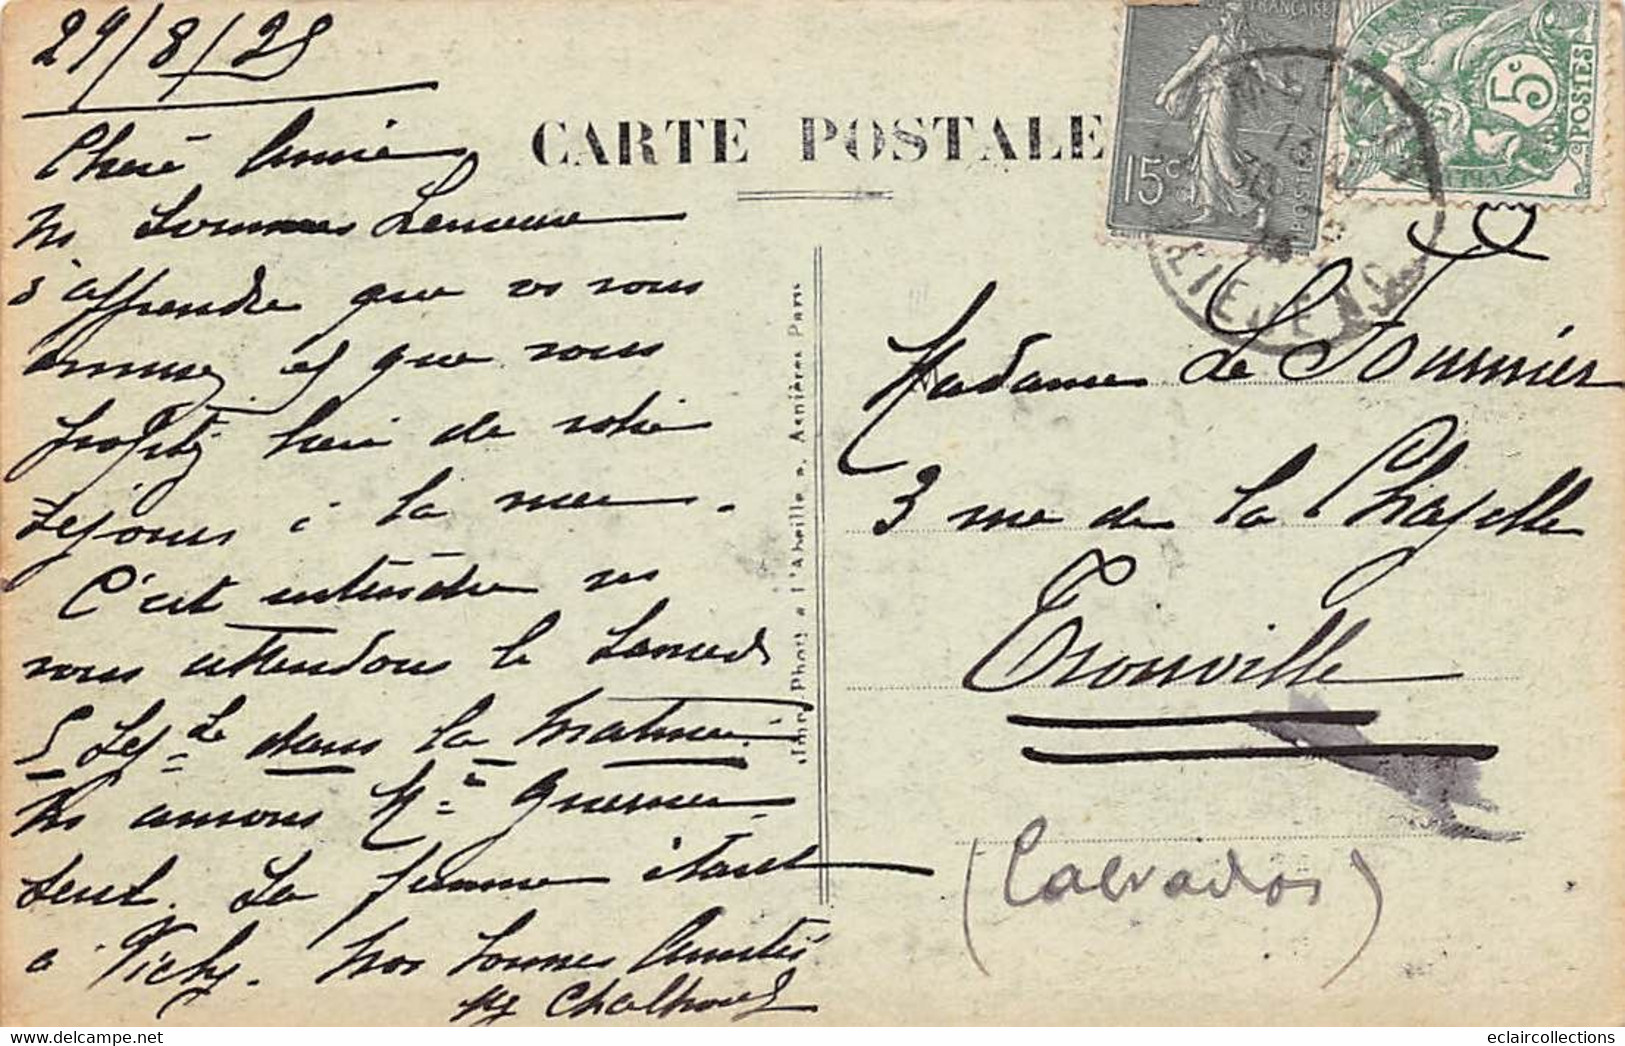 29/8/25
CARTE POSTALE
FRANÇAISE
15c
POSTES
5c
POSTES
Chere Amie
Ns sommes heureux
d'apprendre que vs vous
amusez et que vous
profitez bien de votre
séjour à la mer.
C'est entendu ns
vous attendons le Samedi
5 Sep. dans la matinée.
Ns aurons Mr
seul. Sa femme étant
à Vichy. Nos bonnes Amitiés
Impr. Phot. "l'Abeille", Asnières-Paris
Madame Le Fournier
3 rue de la Chapelle
Trouville
(Calvados)
eclaircollections